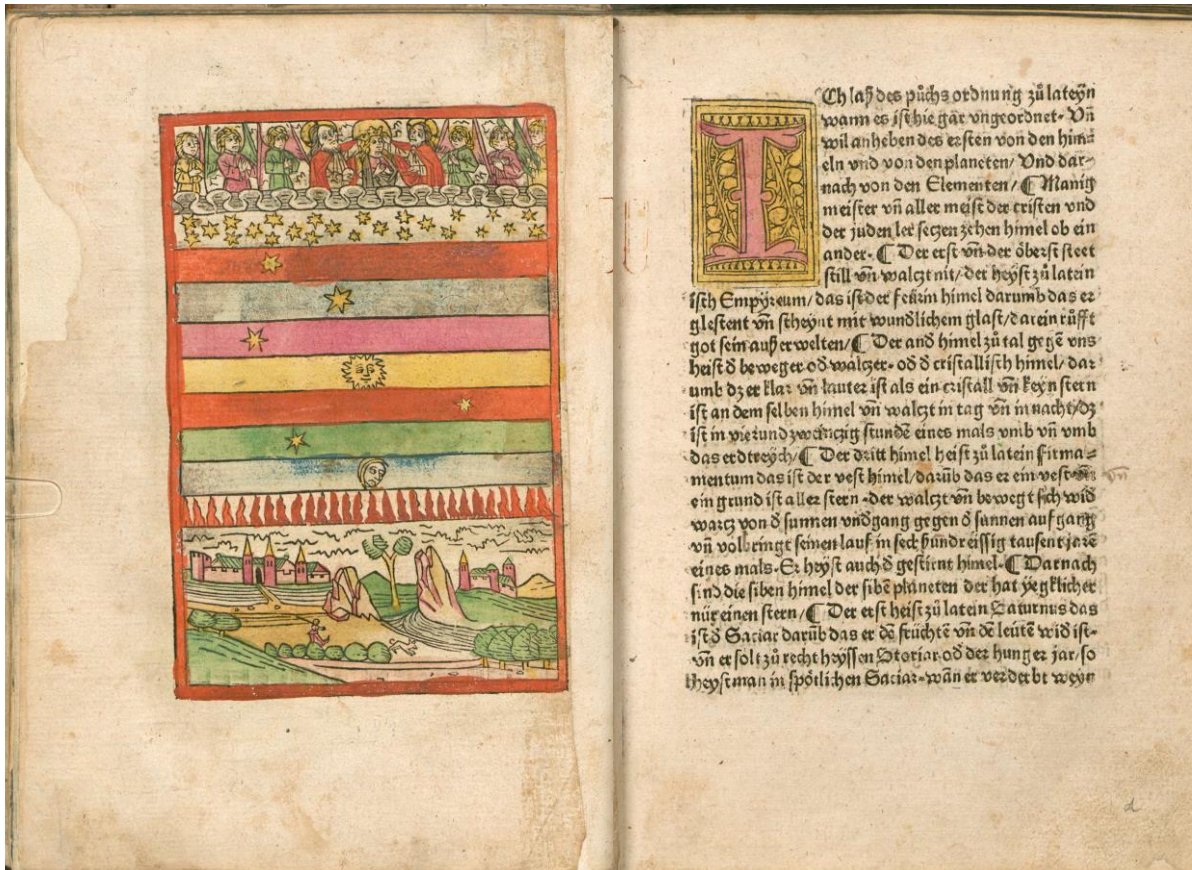 ICh laß des půchs ordnung zů lateyn
wann es ist hie gar vngeordnet. Vñ
wil anheben des ersten von den him⸗
eln vnd von den planeten/ Vnd dar⸗
nach von den Elementen/ ¶ Manig
meister vñ aller meist der cristen vnd
der juden ler seczen zehen himel ob ein
ander. ¶ Der erst vñ der öberst steet
still vñ walczt nit/ der heyst zů latein
isch Empÿreum/ das ist der feürin himel darumb das er
glestent vñ scheynt mit wundlichem glast/ darein růfft
got sein außerwelten/ ¶ Der and himel zů tal gegē vns
heist d̄ beweger od̄ walczer. od̄ d̄ cristallisch himel/ dar
umb dz er klar vñ lauter ist als ein cristall vñ keyn stern
ist an dem selben himel vñ walczt in tag vñ in nacht/ dz
ist in vierundzweinczig stundē eines mals vmb vñ vmb
das erdtreych/ ¶ Der dritt himel heist zů latein firma⸗
mentum das ist der vest himel/ darūb das er ein vest vñ
ein grund ist aller stern. der walczt vñ bewegt sich wid̄
warcz von d̄ sunnen vndgang gegen d̄ sunnen aufgang
vñ volbringt seinen lauf in sechßundreissig tausent jarē
eines mals. Er heyst auch d̄ gestirnt himel. ¶ Darnach
sind die siben himel der sibē planeten der hat ÿegklicher
nür einen stern/ ¶ Der erst heist zů latein Saturnus das
ist d̄ Saciar darūb das er dē früchtē vñ dē leütē wid̄ ist.
vñ er solt zů recht heyssen Storiar od̄ der hunger jar/ so
heyst man in spötlichen Saciar. wān er verderbt weyn
vñ
d